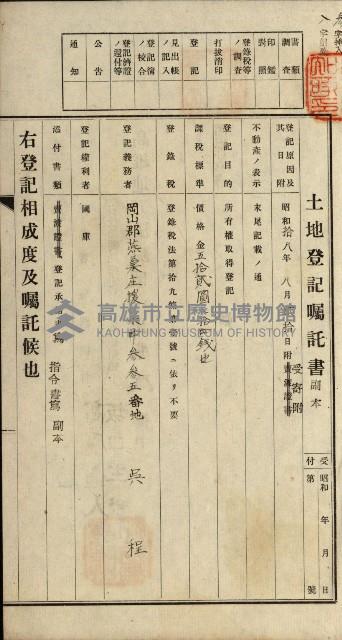 土地登記囑託書 副本
受付
昭和 年 月 日
第 號
登記原因及其日附 昭和拾八年八月 拾日附 受寄附
不動產ノ表示 末尾記載ノ通
登記目的 所有權取得登記
課稅標準 價格金五拾貳圓 拾 錢也
登錄稅 登錄稅法第拾九條 號ニ依リ不要
登記義務者 岡山郡燕巢庄 參參五番地
吳 程
登記權利者 國庫
添付書類 登記承 書 指令書寫 副本
右登記相成度及囑託候也
書類調查
印鑑對照
登錄稅等ノ調查
打拔消印
登記
見出帳ノ記入
登記簿ノ校合
登記濟證ノ還付等
公告
通知
高雄市立歷史博物館
KAOHSIUNG MUSEUM OF HISTORY